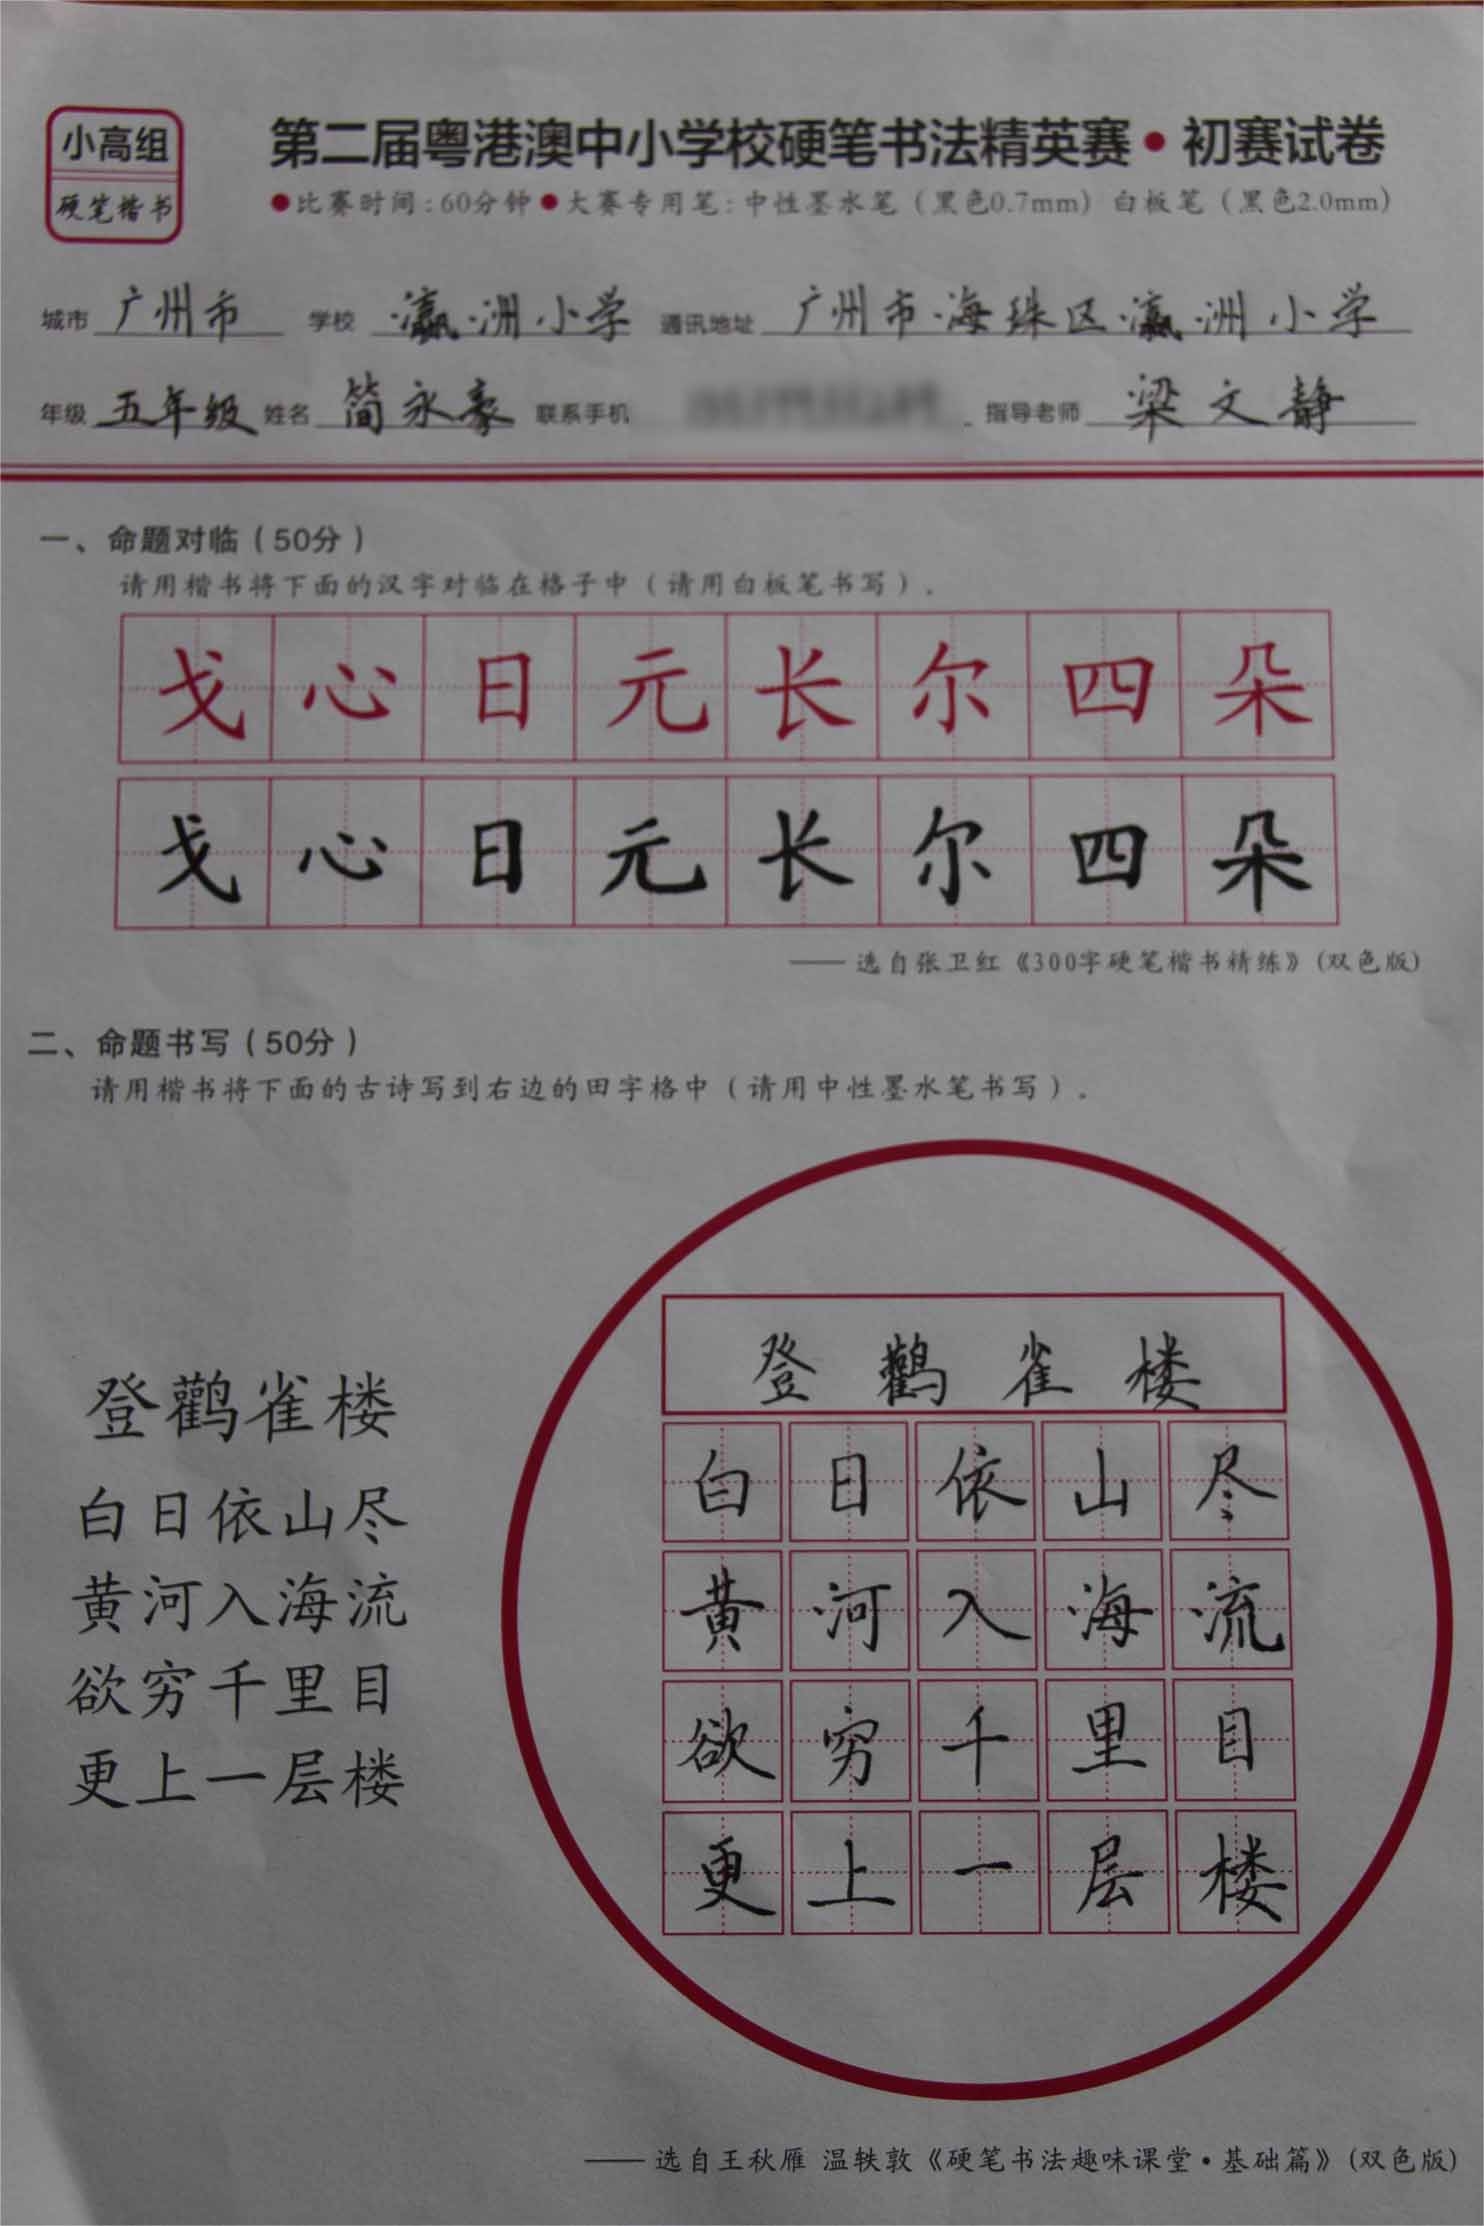 小高组
硬笔楷书
第二届粤港澳中小学校硬笔书法精英赛•初赛试卷
●比赛时间:60分钟●大赛专用笔:中性墨水笔(黑色0.7mm) 白板笔(黑色2.0mm)
城市 广州市 学校 瀛洲小学 通讯地址 广州市海珠区瀛洲小学
年级 五年级 姓名 简永豪 联系手机 指导老师 梁文静
一、命题对临(50分)
请用楷书将下面的汉字对临在格子中(请用白板笔书写)。
戈心日元长尔四朵
戈心日元长尔四朵
——选自张卫红《300字硬笔楷书精练》(双色版)
二、命题书写(50分)
请用楷书将下面的古诗写到右边的田字格中(请用中性墨水笔书写)。
登鹳雀楼
白日依山尽
黄河入海流
欲穷千里目
更上一层楼
登鹳雀楼
白日依山尽
黄河入海流
欲穷千里目
更上一层楼
——选自王秋雁 温轶敦《硬笔书法趣味课堂•基础篇》(双色版)